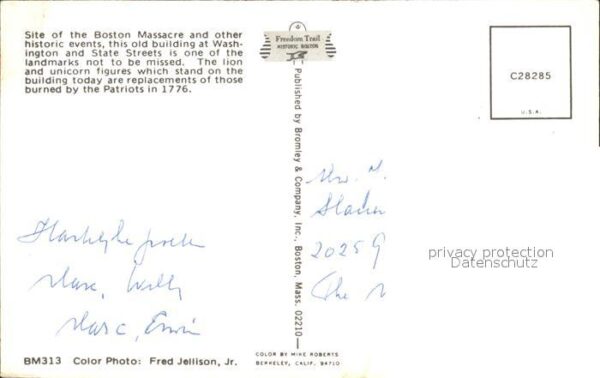 Site of the Boston Massacre and other
historic events, this old building at Wash-
ington and State Streets is one of the
landmarks not to be missed. The lion
and unicorn figures which stand on the
building today are replacements of those
burned by the Patriots in 1776.
Freedom Trail
HISTORIC BOSTON
Published by Bromley & Company, Inc., Boston, Mass. 02210
C28285
U.S.A.
2025
The
privacy protection
Datenschutz
Willy
BM313 Color Photo: Fred Jellison, Jr.
COLOR BY MIKE ROBERTS
BERKELEY, CALIF. 94710